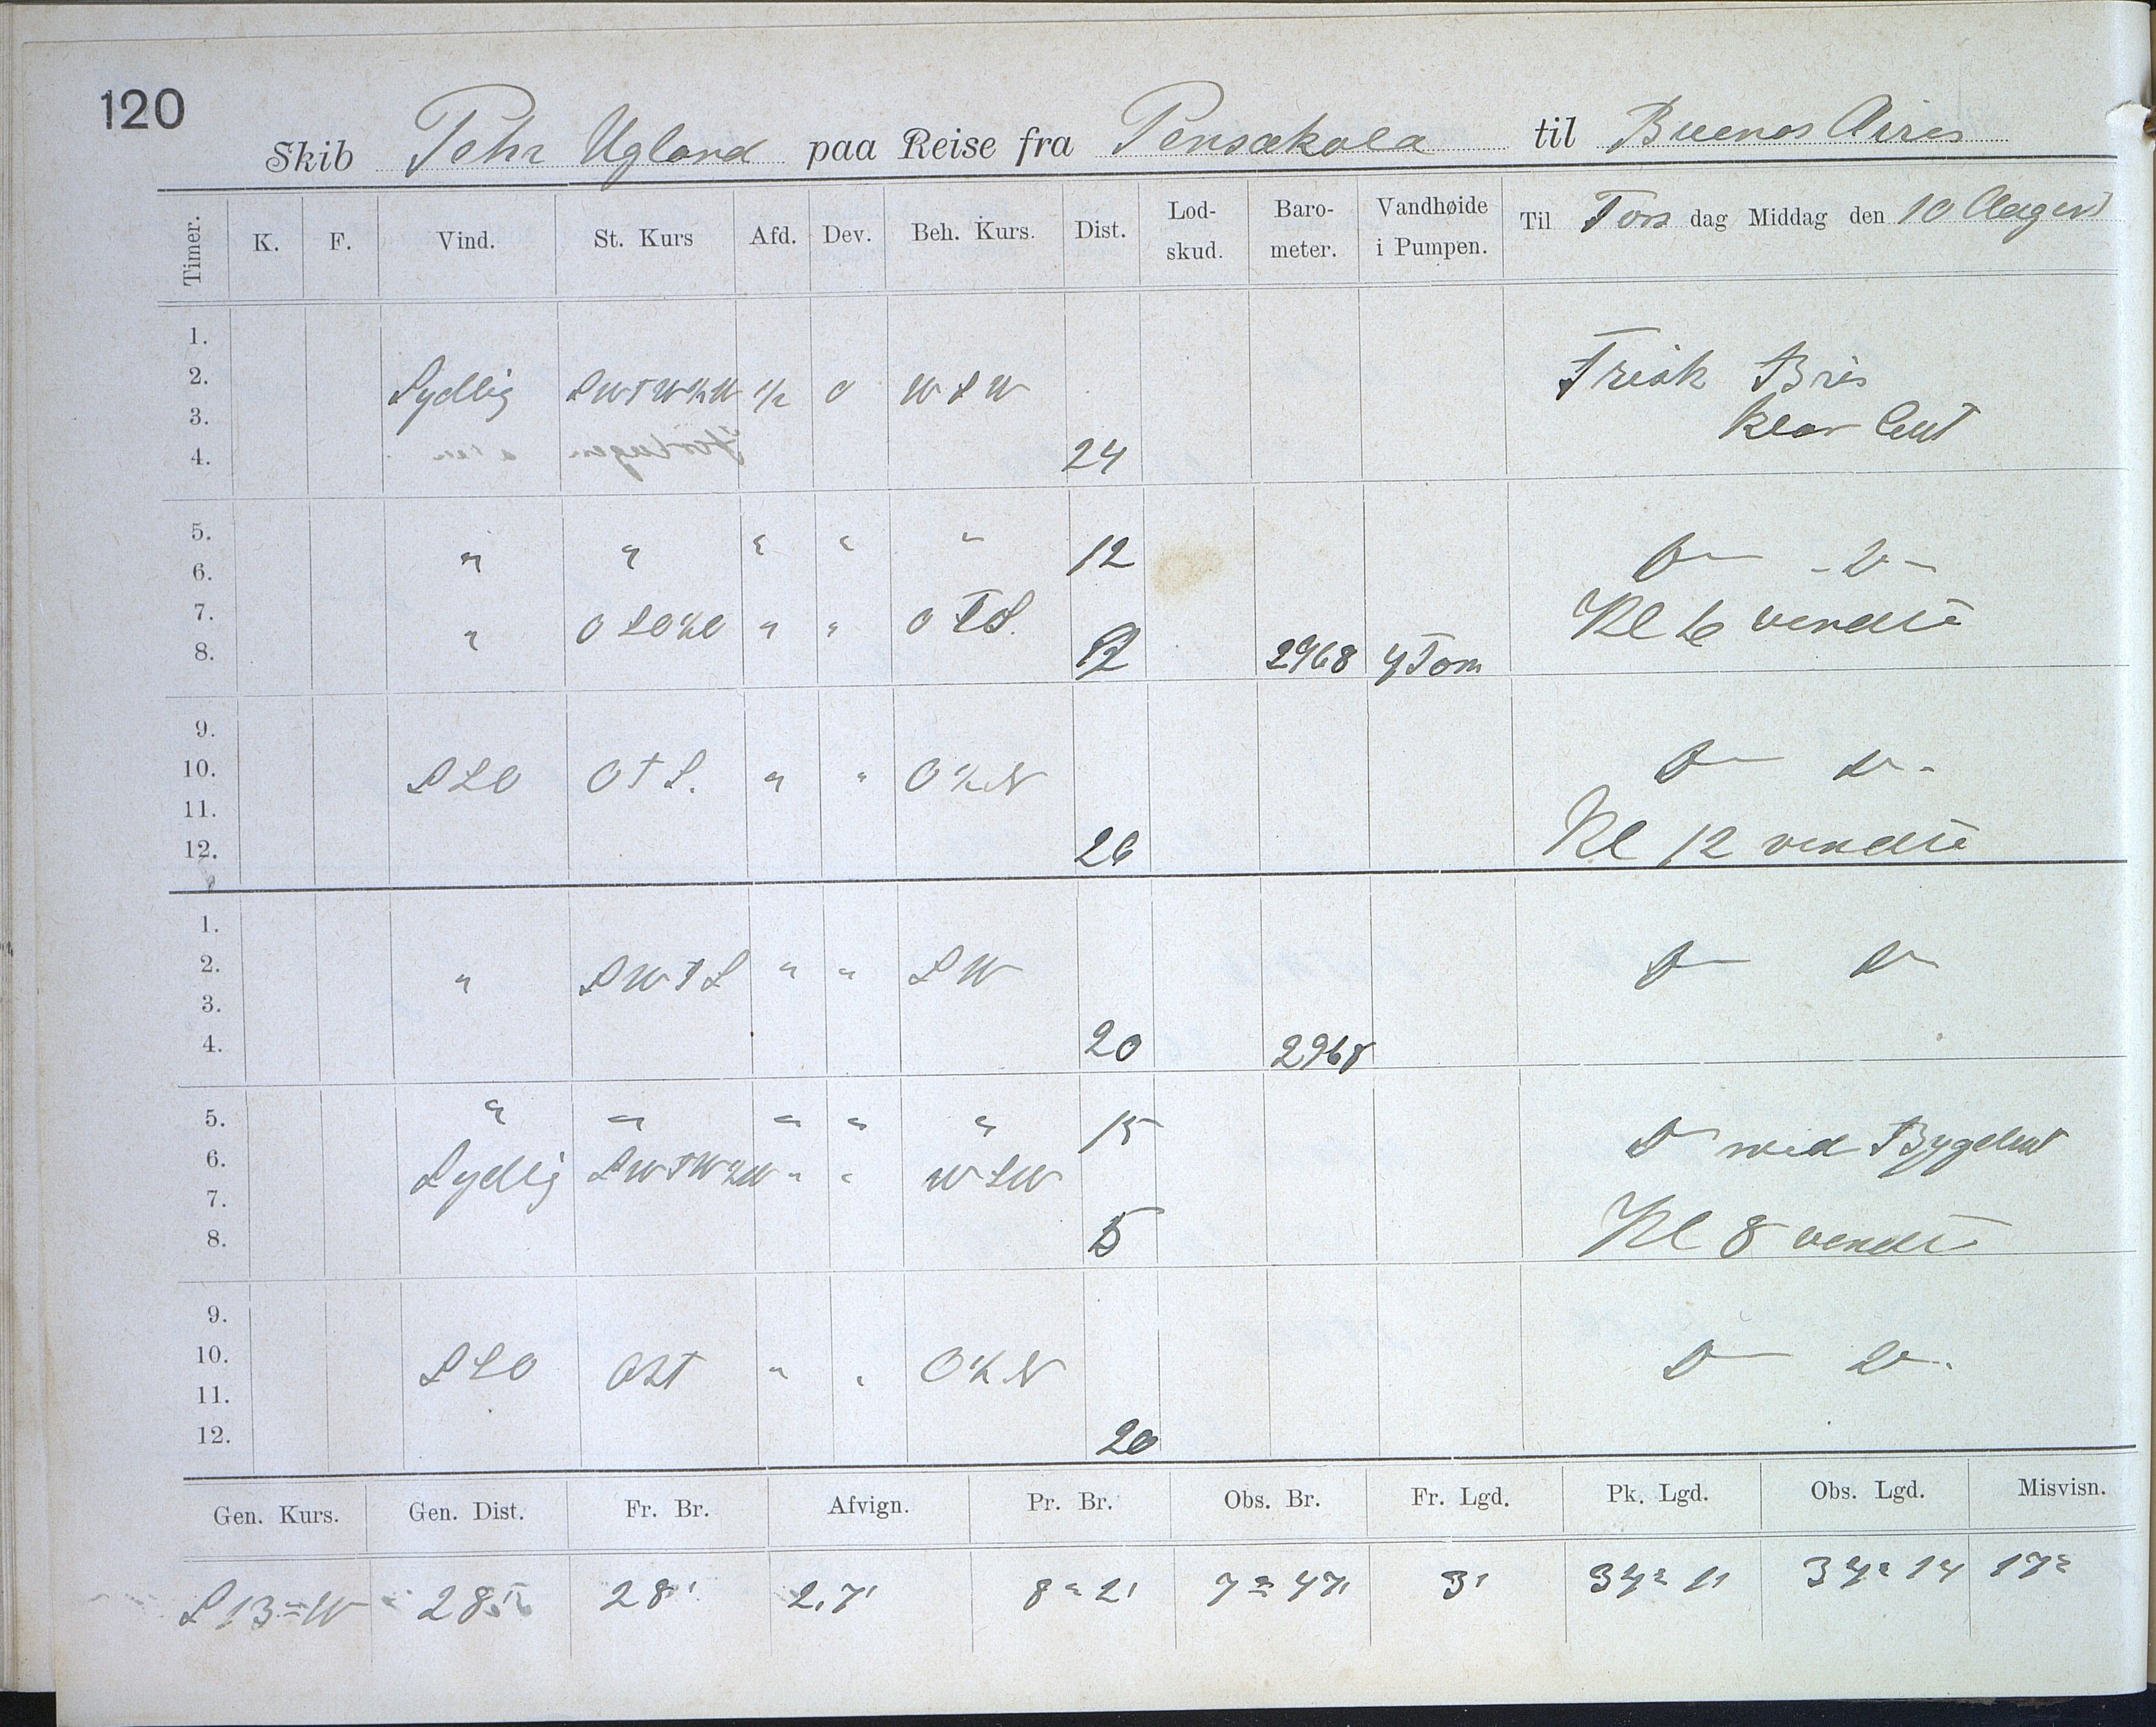 120
Skib Pehr Ugland paa Reise fra Pensakola til Buenos Aires
Timer. K. F. Vind. St. Kurs Afd. Dev. Beh. Kurs. Dist. Lod-skud. Baro-meter. Vandhøide i Pumpen. Til Tors dag Middag den 10 August
1.
2. Sydlig SWTW½W ½ 0 WSW Frisk Bris
3. klar Luft
4. 24
5. " " " " " 12
6. D— -D-
7. " OSO½O " " OTS. Kl 6 vendte
8. 12 2968 4 Tom
9.
10. SSO OTS. " " O½N D— D-
11.
12. 26 Kl 12 vendte
1.
2. " SWTS " " SW D— D—
3.
4. 20 2968
5. " " " " " 15 D— med Bygeluft
6. Sydlig SWTW½W " " WSW
7.
8. 15 Kl 8 vendte
9.
10. SSO OST " " O½N D— D-
11.
12. 20
Gen. Kurs. Gen. Dist. Fr. Br. Afvign. Pr. Br. Obs. Br. Fr. Lgd. Pk. Lgd. Obs. Lgd. Misvisn.
S 13° W 28' 8° 2' 7° 47' 3' 34° 11 34° 14 17°